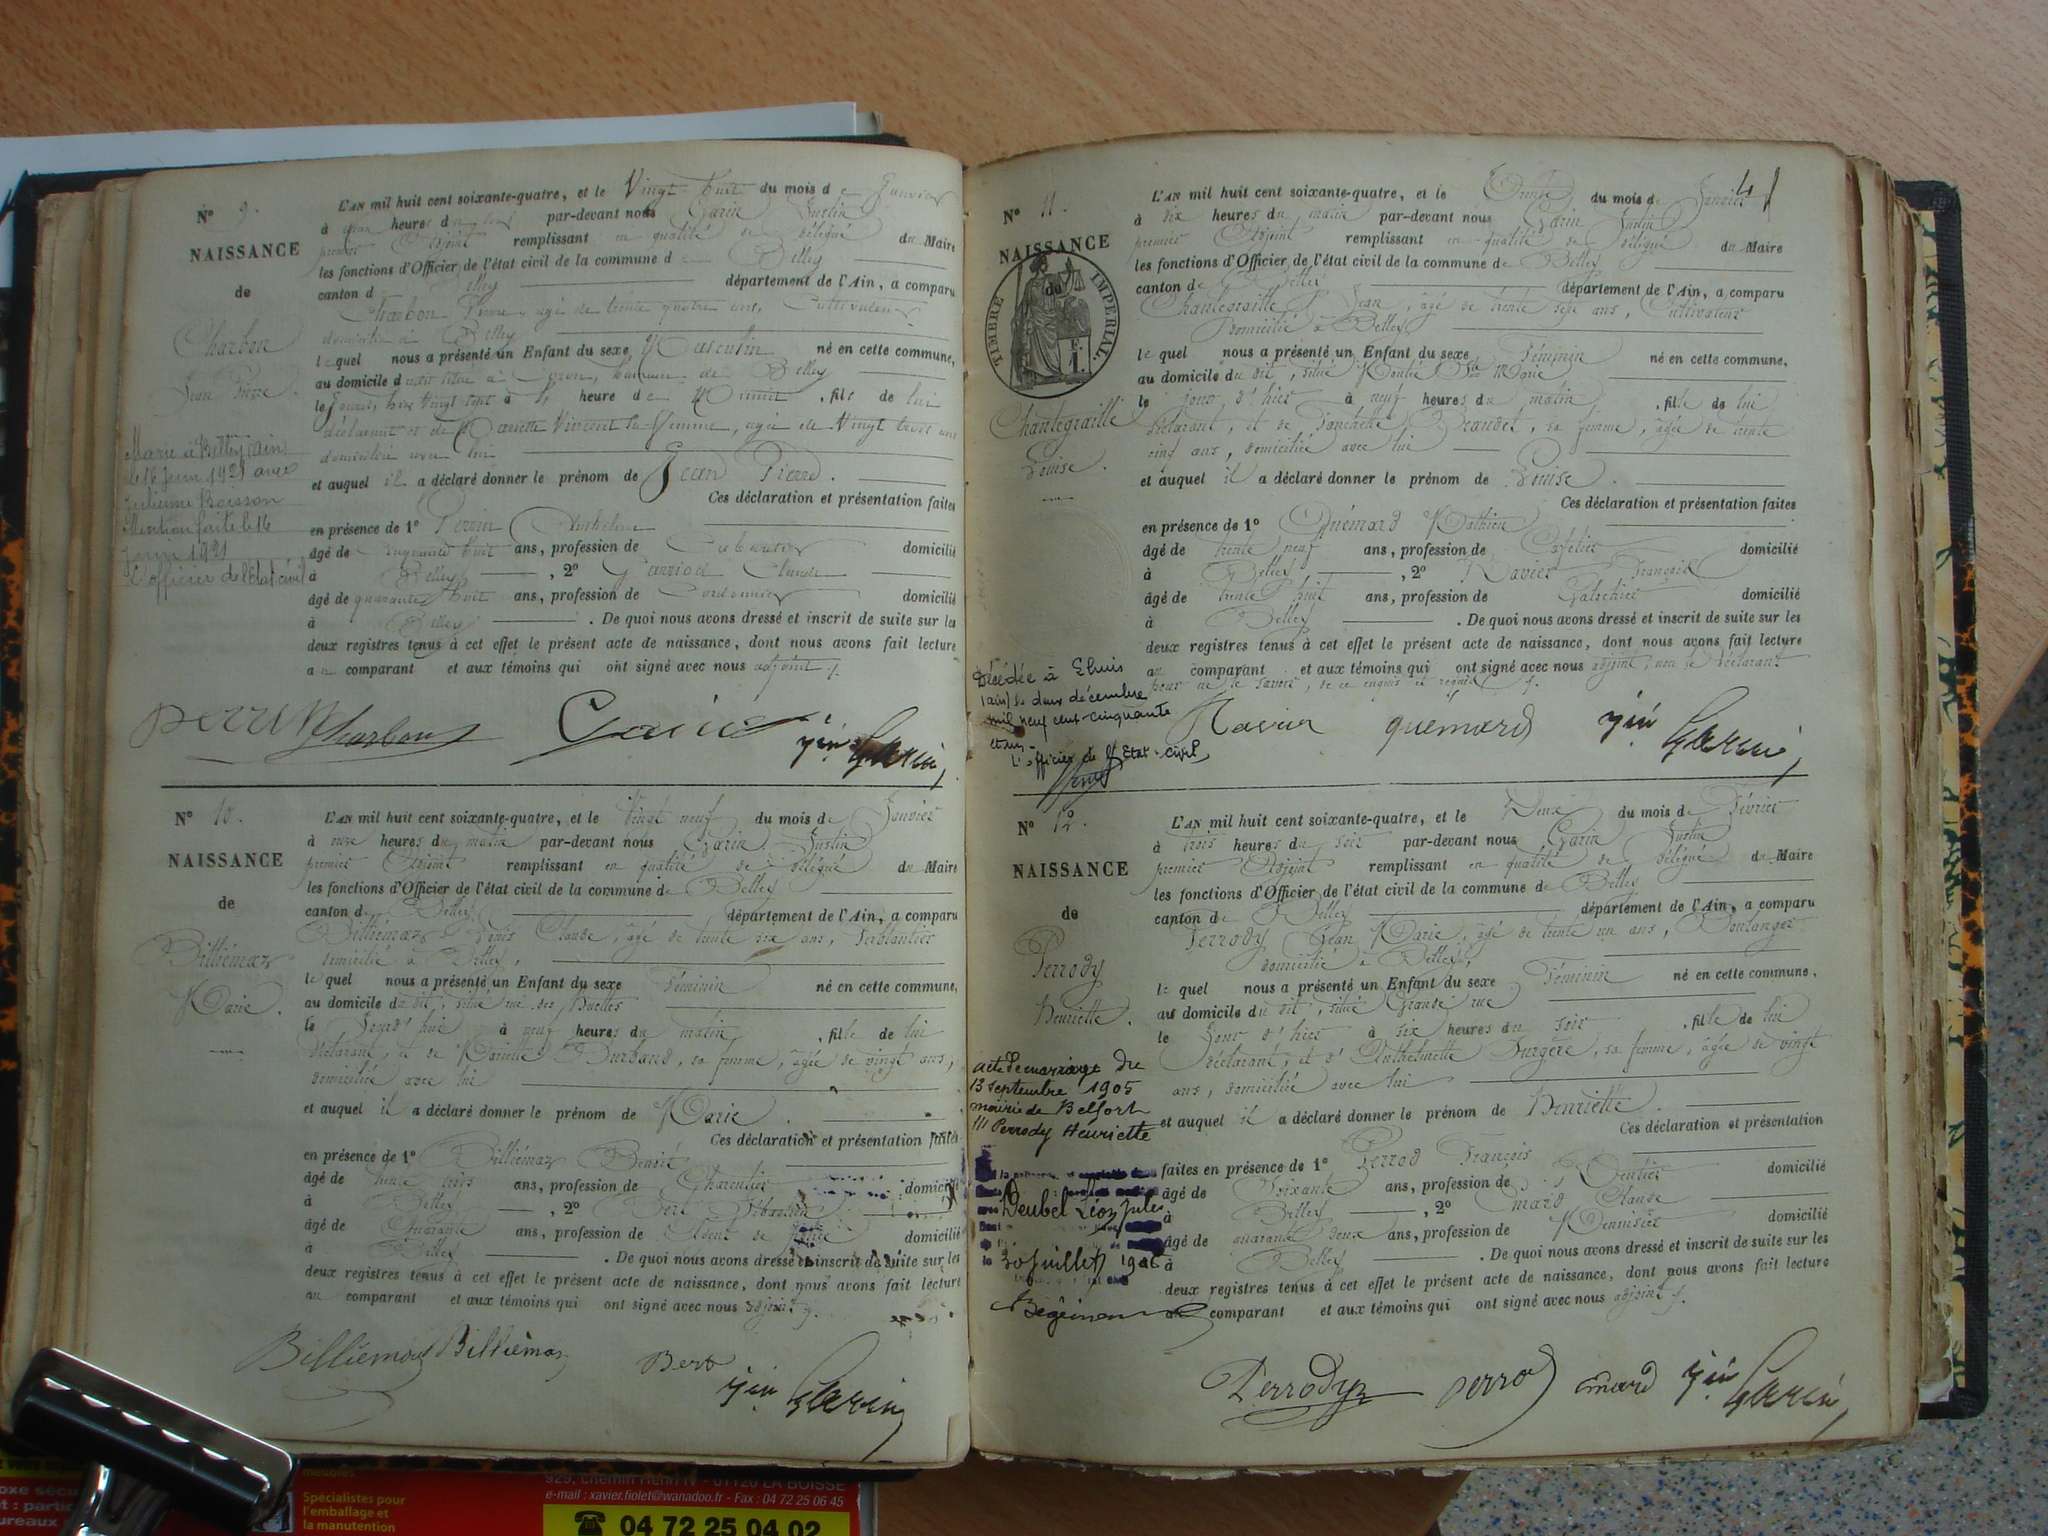 N° 9.
NAISSANCE
de
Charbon
Jean Pierre.
Marié à Belley (Ain)
le 16 Juin 1921 avec
Julienne Boisson
Mention faite le 16
Juin 1921
L'officier de l'état civil
L'AN mil huit cent soixante-quatre, et le Vingt huit du mois de Janvier
à heures du par-devant nous Garin Justin
premier Adjoint remplissant en qualité de délégué du Maire
les fonctions d'Officier de l'état civil de la commune de Belley
canton de Belley département de l'Ain, a comparu
Charbon Pierre, âgé de trente quatre ans, Cultivateur
domicilié à Belley
lequel nous a présenté un Enfant du sexe Masculin né en cette commune,
au domicile dudit situé à commune de Belley
le vingt sept à heure de Minuit, fils de lui
déclarant et de Mariette Vincent sa femme, âgée de Vingt trois ans
domiciliée avec lui
et auquel il a déclaré donner le prénom de Jean Pierre.
Ces déclaration et présentation faites
en présence de 1° Perrin Anthelme
âgé de cinquante huit ans, profession de domicilié
à Belley, 2° Claude
âgé de quarante huit ans, profession de Cordonnier domicilié
à Belley. De quoi nous avons dressé et inscrit de suite sur les
deux registres tenus à cet effet le présent acte de naissance, dont nous avons fait lecture
au comparant et aux témoins qui ont signé avec nous adjoint
perrin Charbon
jin Garin
N° 10.
NAISSANCE
de
Billiémaz
Marie.
L'AN mil huit cent soixante-quatre, et le Vingt neuf du mois de Janvier
à onze heures du matin par-devant nous Garin Justin
premier Adjoint remplissant en qualité de délégué du Maire
les fonctions d'Officier de l'état civil de la commune de Belley
canton de Belley département de l'Ain, a comparu
Billiémaz Denis Claude, âgé de trente six ans, Ferblantier
domicilié à Belley,
lequel nous a présenté un Enfant du sexe Féminin né en cette commune,
au domicile du dit, situé rue des
le Jourd'hui à neuf heures du matin, fille de lui
déclarant, et de Mariette Durband, sa femme, âgée de vingt ans,
domiciliée avec lui
et auquel il a déclaré donner le prénom de Marie.
Ces déclaration et présentation faites
en présence de 1° Billiémaz Benoit
âgé de trente trois ans, profession de Charcutier domicilié
à Belley, 2° Bert
âgé de Quarante ans, profession de Agent de police domicilié
à Belley. De quoi nous avons dressé et inscrit de suite sur les
deux registres tenus à cet effet le présent acte de naissance, dont nous avons fait lecture
au comparant et aux témoins qui ont signé avec nous adjoint
Billiémaz Billiémaz Bert jin Garin
N° 11.
NAISSANCE
de
TIMBRE IMPERIAL.
Chantegraille
Louise.
Décédée à
(Ain) le deux décembre
mil neuf cent cinquante
et un
L'officier de l'Etat-civil
L'AN mil huit cent soixante-quatre, et le du mois de Janvier
à dix heures du matin par-devant nous Garin Justin
premier Adjoint remplissant en qualité de délégué du Maire
les fonctions d'Officier de l'état civil de la commune de Belley
canton de Belley département de l'Ain, a comparu
Chantegraille Jean, âgé de trente sept ans, Cultivateur
domicilié à Belley
lequel nous a présenté un Enfant du sexe Féminin né en cette commune,
au domicile du dit, situé Montée Ste Marie
le jour d'hier à neuf heures du matin, fille de lui
déclarant, et de Beaudet, sa femme, âgée de trente
cinq ans, domiciliée avec lui
et auquel il a déclaré donner le prénom de Louise.
Ces déclaration et présentation faites
en présence de 1° Quémard Mathieu
âgé de trente neuf ans, profession de Cafetier domicilié
à Belley, 2° Ravier François
âgé de trente huit ans, profession de Galochier domicilié
à Belley. De quoi nous avons dressé et inscrit de suite sur les
deux registres tenus à cet effet le présent acte de naissance, dont nous avons fait lecture
au comparant et aux témoins qui ont signé avec nous adjoint, non le déclarant
pour ne le savoir, de ce enquis et requis
Ravier quémard jin Garin
N° 12.
NAISSANCE
de
Perrody
Henriette.
acte de mariage du
13 septembre 1905
mairie de Belfort
Perrody Henriette
Deubel Léon Jules
le 30 juillet 1906
L'AN mil huit cent soixante-quatre, et le Deux du mois de Février
à trois heures du soir par-devant nous Garin Justin
premier Adjoint remplissant en qualité de délégué du Maire
les fonctions d'Officier de l'état civil de la commune de Belley
canton de Belley département de l'Ain, a comparu
Perrody Jean Marie, âgé de trente un ans, Boulanger
domicilié à Belley,
lequel nous a présenté un Enfant du sexe Féminin né en cette commune,
au domicile du dit, situé Grande rue
le Jour d'hier à six heures du soir, fille de lui
déclarant, et d'Anthelmette Surgère, sa femme, âgée de vingt
ans, domiciliée avec lui
et auquel il a déclaré donner le prénom de Henriette.
Ces déclaration et présentation
faites en présence de 1° Perrod François
âgé de Soixante ans, profession de Rentier domicilié
à Belley, 2° Emard Claude
âgé de quarante deux ans, profession de Menuisier domicilié
à Belley. De quoi nous avons dressé et inscrit de suite sur les
deux registres tenus à cet effet le présent acte de naissance, dont nous avons fait lecture
au comparant et aux témoins qui ont signé avec nous adjoint
Perrody perrod emard jin Garin
meubles
Spécialistes pour
l'emballage et
la manutention
929, chemin Henri IV - 01120 LA BOISSE
e-mail : xavier.fiolet@wanadoo.fr - Fax : 04 72 25 06 45
04 72 25 04 02